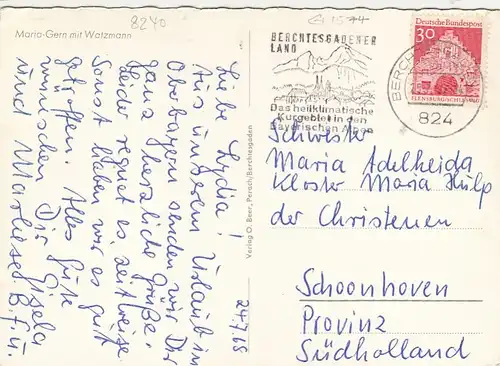 8240
1544
Maria-Gern mit Watzmann
Liebe Lydia!
Aus unserem Urlaub in
Oberbayern senden wir Dir
ganz herzliche Grüße.
Leider regnet es zeitweise.
Sonst haben wir es gut
getroffen. Alles Gute
wünschen Dir Gisela
und Marliese B. f. u.
24.7.68
Verlag O. Beer, Perach/Berchtesgaden
BERCHTESGADENER
LAND
Das heilklimatische
Kurgebiet in den
Bayerischen Alpen
BERCHT
824
Deutsche Bundespost
30
FLENSBURG/SCHLESWIG
Schwester
Maria Adelheida
Kloster Maria Hülp
der Christenen
Schoonhoven
Provinz
Südholland